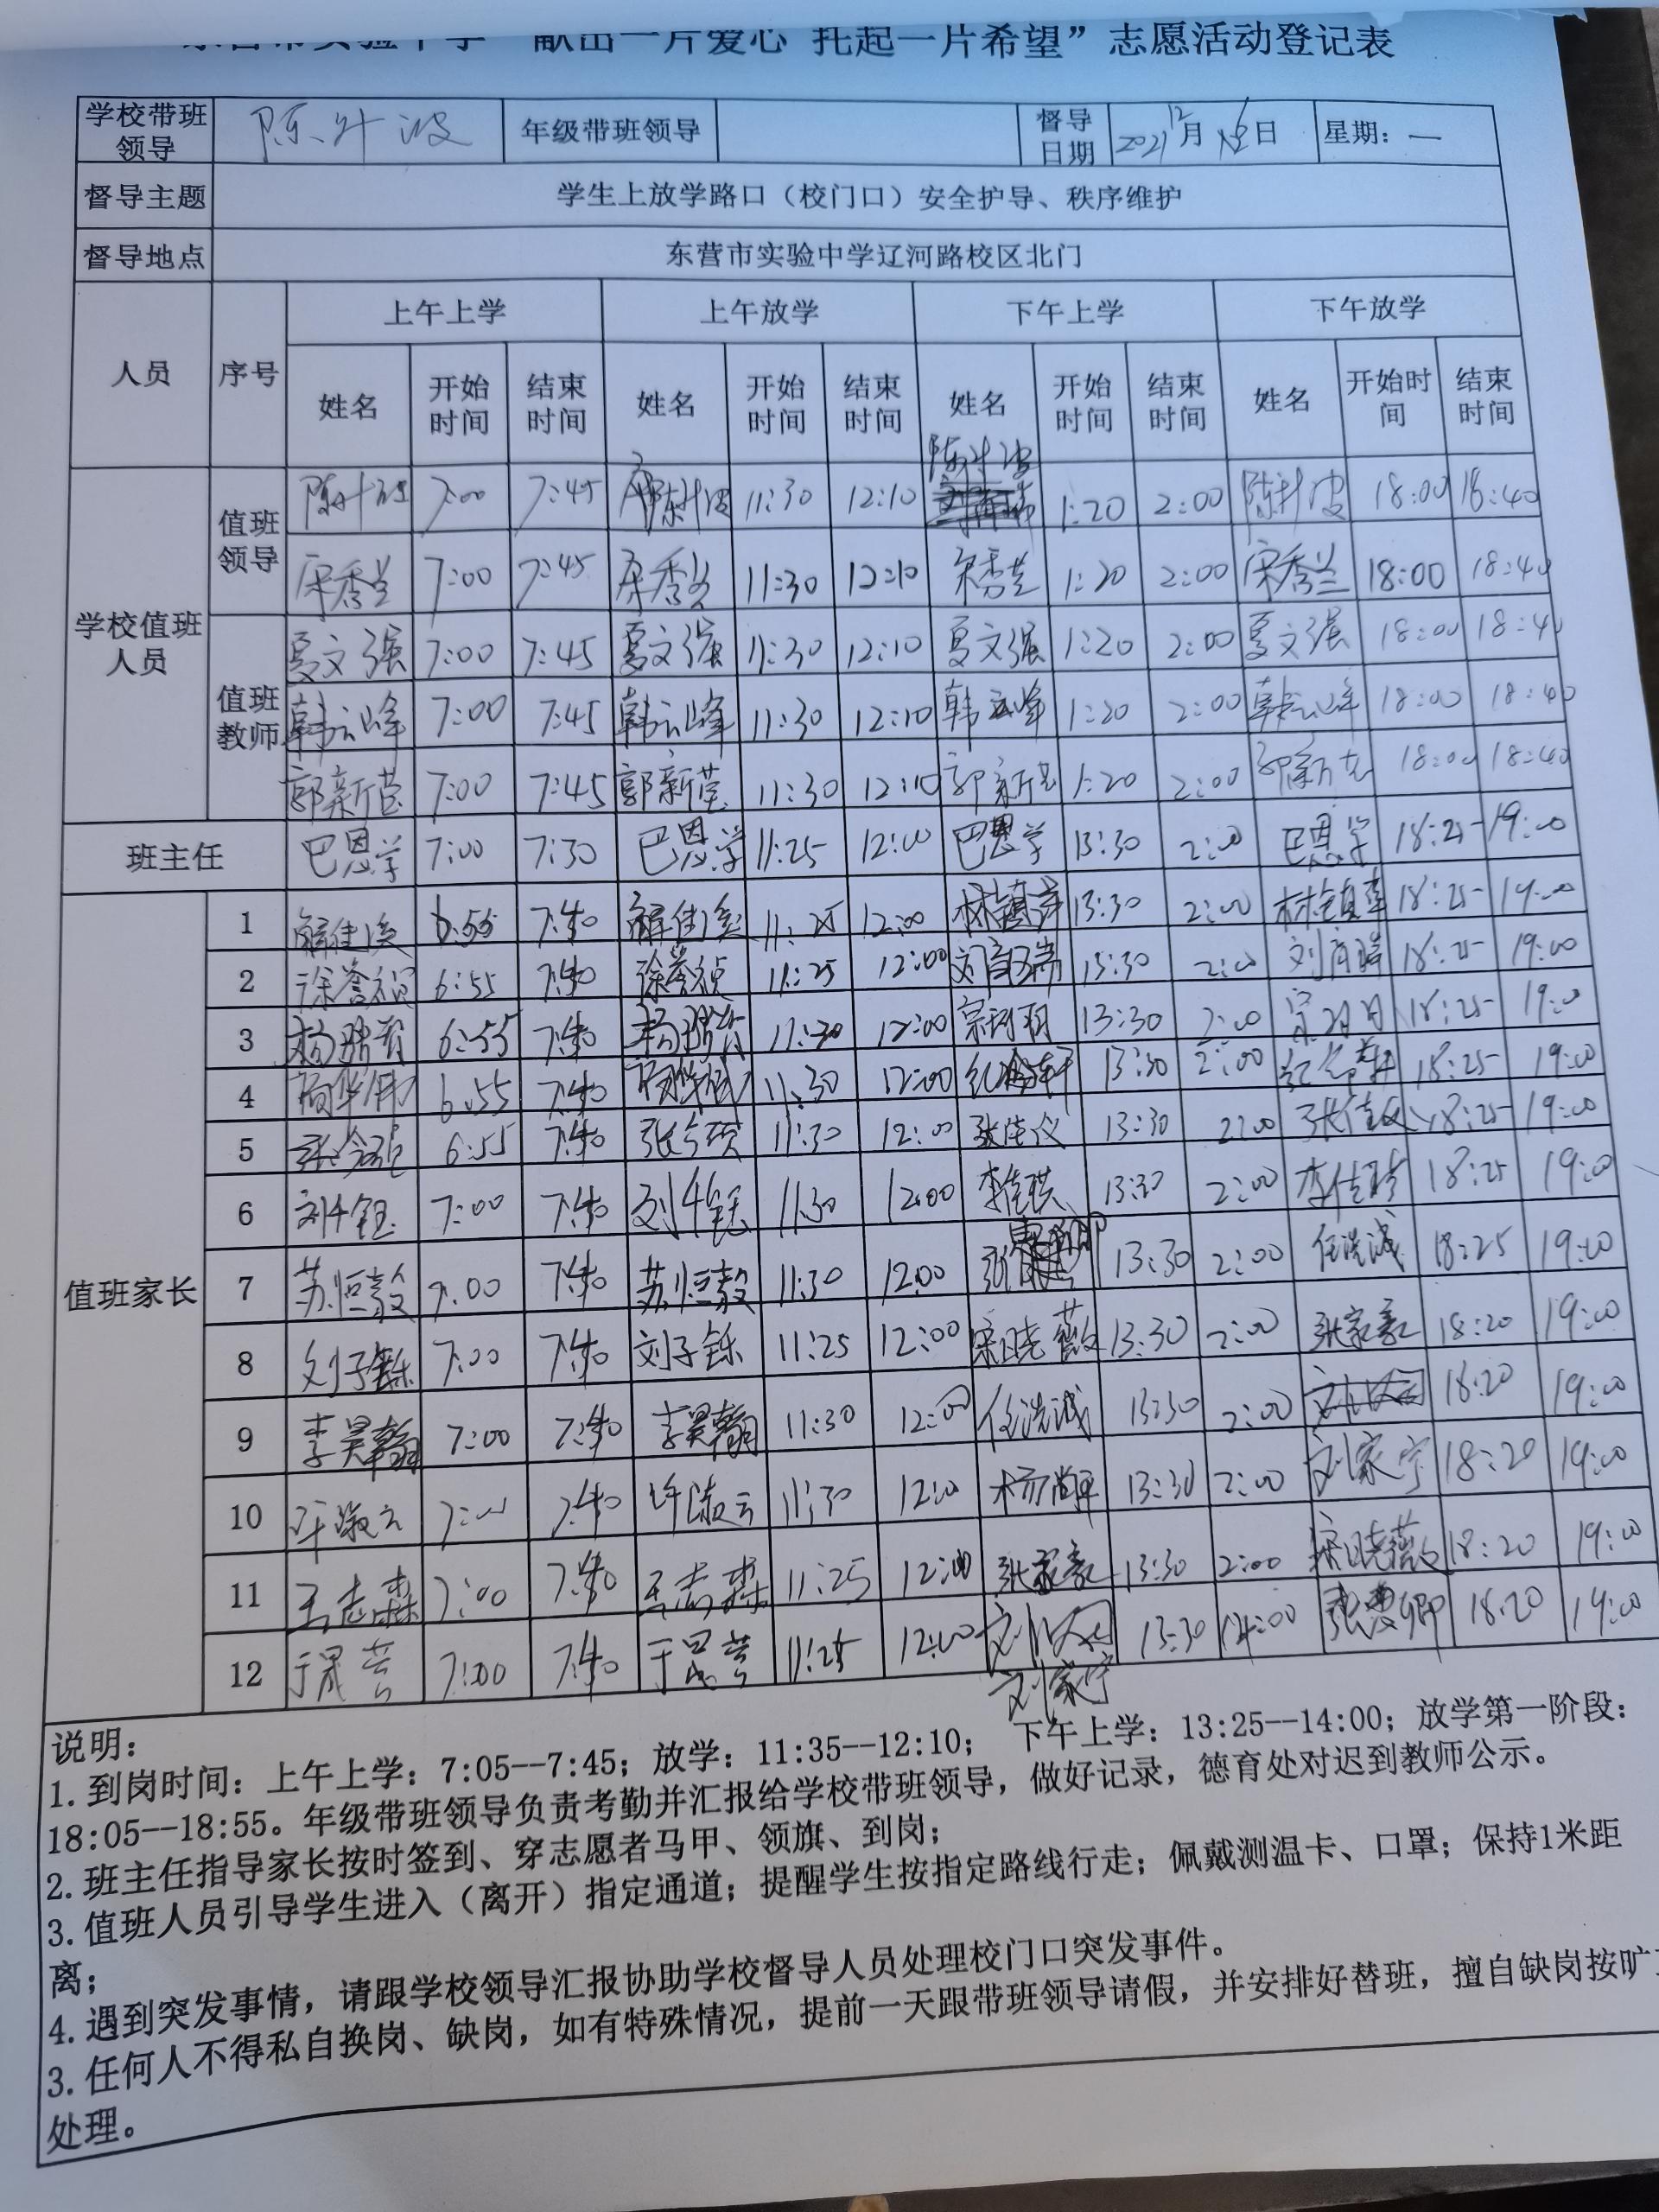 献出一片爱心 托起一片希望”志愿活动登记表
学校带班领导 陈升波 年级带班领导 督导日期 2021 12月 日 星期：一
督导主题 学生上放学路口（校门口）安全护导、秩序维护
督导地点 东营市实验中学辽河路校区北门
人员 序号 上午上学 上午放学 下午上学 下午放学
姓名 开始时间 结束时间 姓名 开始时间 结束时间 姓名 开始时间 结束时间 姓名 开始时间 结束时间
学校值班人员 值班领导 陈升波 7:00 7:45 陈升波 11:30 12:10 陈升波 1:20 2:00 陈升波 18:00 18:40
宋秀兰 7:00 7:45 宋秀兰 11:30 12:10 宋秀兰 1:20 2:00 宋秀兰 18:00 18:40
值班教师 夏文强 7:00 7:45 夏文强 11:30 12:10 夏文强 1:20 2:00 夏文强 18:00 18:40
韩云峰 7:00 7:45 韩云峰 11:30 12:10 韩云峰 1:20 2:00 韩云峰 18:00 18:40
郭新莹 7:00 7:45 郭新莹 11:30 12:10 郭新莹 1:20 2:00 郭新莹 18:00 18:40
班主任 巴恩学 7:00 7:30 巴恩学 11:25 12:00 巴恩学 13:30 2:00 巴恩学 18:25 19:00
值班家长 1 6:55 7:40 11:25 12:00 13:30 2:00 18:25 19:00
2 徐誉祯 6:55 7:40 徐誉祯 11:25 12:00 13:30 2:00 18:25 19:00
3 6:55 7:40 11:30 12:00 13:30 2:00 18:25 19:00
4 6:55 7:40 11:30 12:00 13:30 2:00 18:25 19:00
5 6:55 7:40 11:30 12:00 张佳仪 13:30 2:00 张佳仪 18:25 19:00
6 刘千钰 7:00 7:40 刘千钰 11:30 12:00 李佳琪 13:30 2:00 18:25 19:00
7 苏恒毅 7:00 7:40 苏恒毅 11:30 12:00 13:30 2:00 任浩诚 18:25 19:00
8 刘子铄 7:00 7:40 刘子铄 11:25 12:00 宋晓薇 13:30 2:00 张家豪 18:20 19:00
9 李昊翰 7:00 7:40 李昊翰 11:30 12:00 任浩诚 13:30 2:00 18:20 19:00
10 许淑云 7:00 7:40 许淑云 11:30 12:00 13:30 2:00 刘家宁 18:20 19:00
11 王志森 7:00 7:40 王志森 11:25 12:00 张家豪 13:30 2:00 宋晓薇 18:20 19:00
12 于晟芸 7:00 7:40 于晟芸 11:25 12:00 刘家宁 13:30 14:00 张惠卿 18:20 19:00
说明：
1.到岗时间：上午上学：7:05--7:45；放学：11:35--12:10； 下午上学：13:25--14:00；放学第一阶段：
18:05--18:55。年级带班领导负责考勤并汇报给学校带班领导，做好记录，德育处对迟到教师公示。
2.班主任指导家长按时签到、穿志愿者马甲、领旗、到岗；
3.值班人员引导学生进入（离开）指定通道；提醒学生按指定路线行走；佩戴测温卡、口罩；保持1米距
离；
4.遇到突发事情，请跟学校领导汇报协助学校督导人员处理校门口突发事件。
3.任何人不得私自换岗、缺岗，如有特殊情况，提前一天跟带班领导请假，并安排好替班，擅自缺岗按旷
处理。